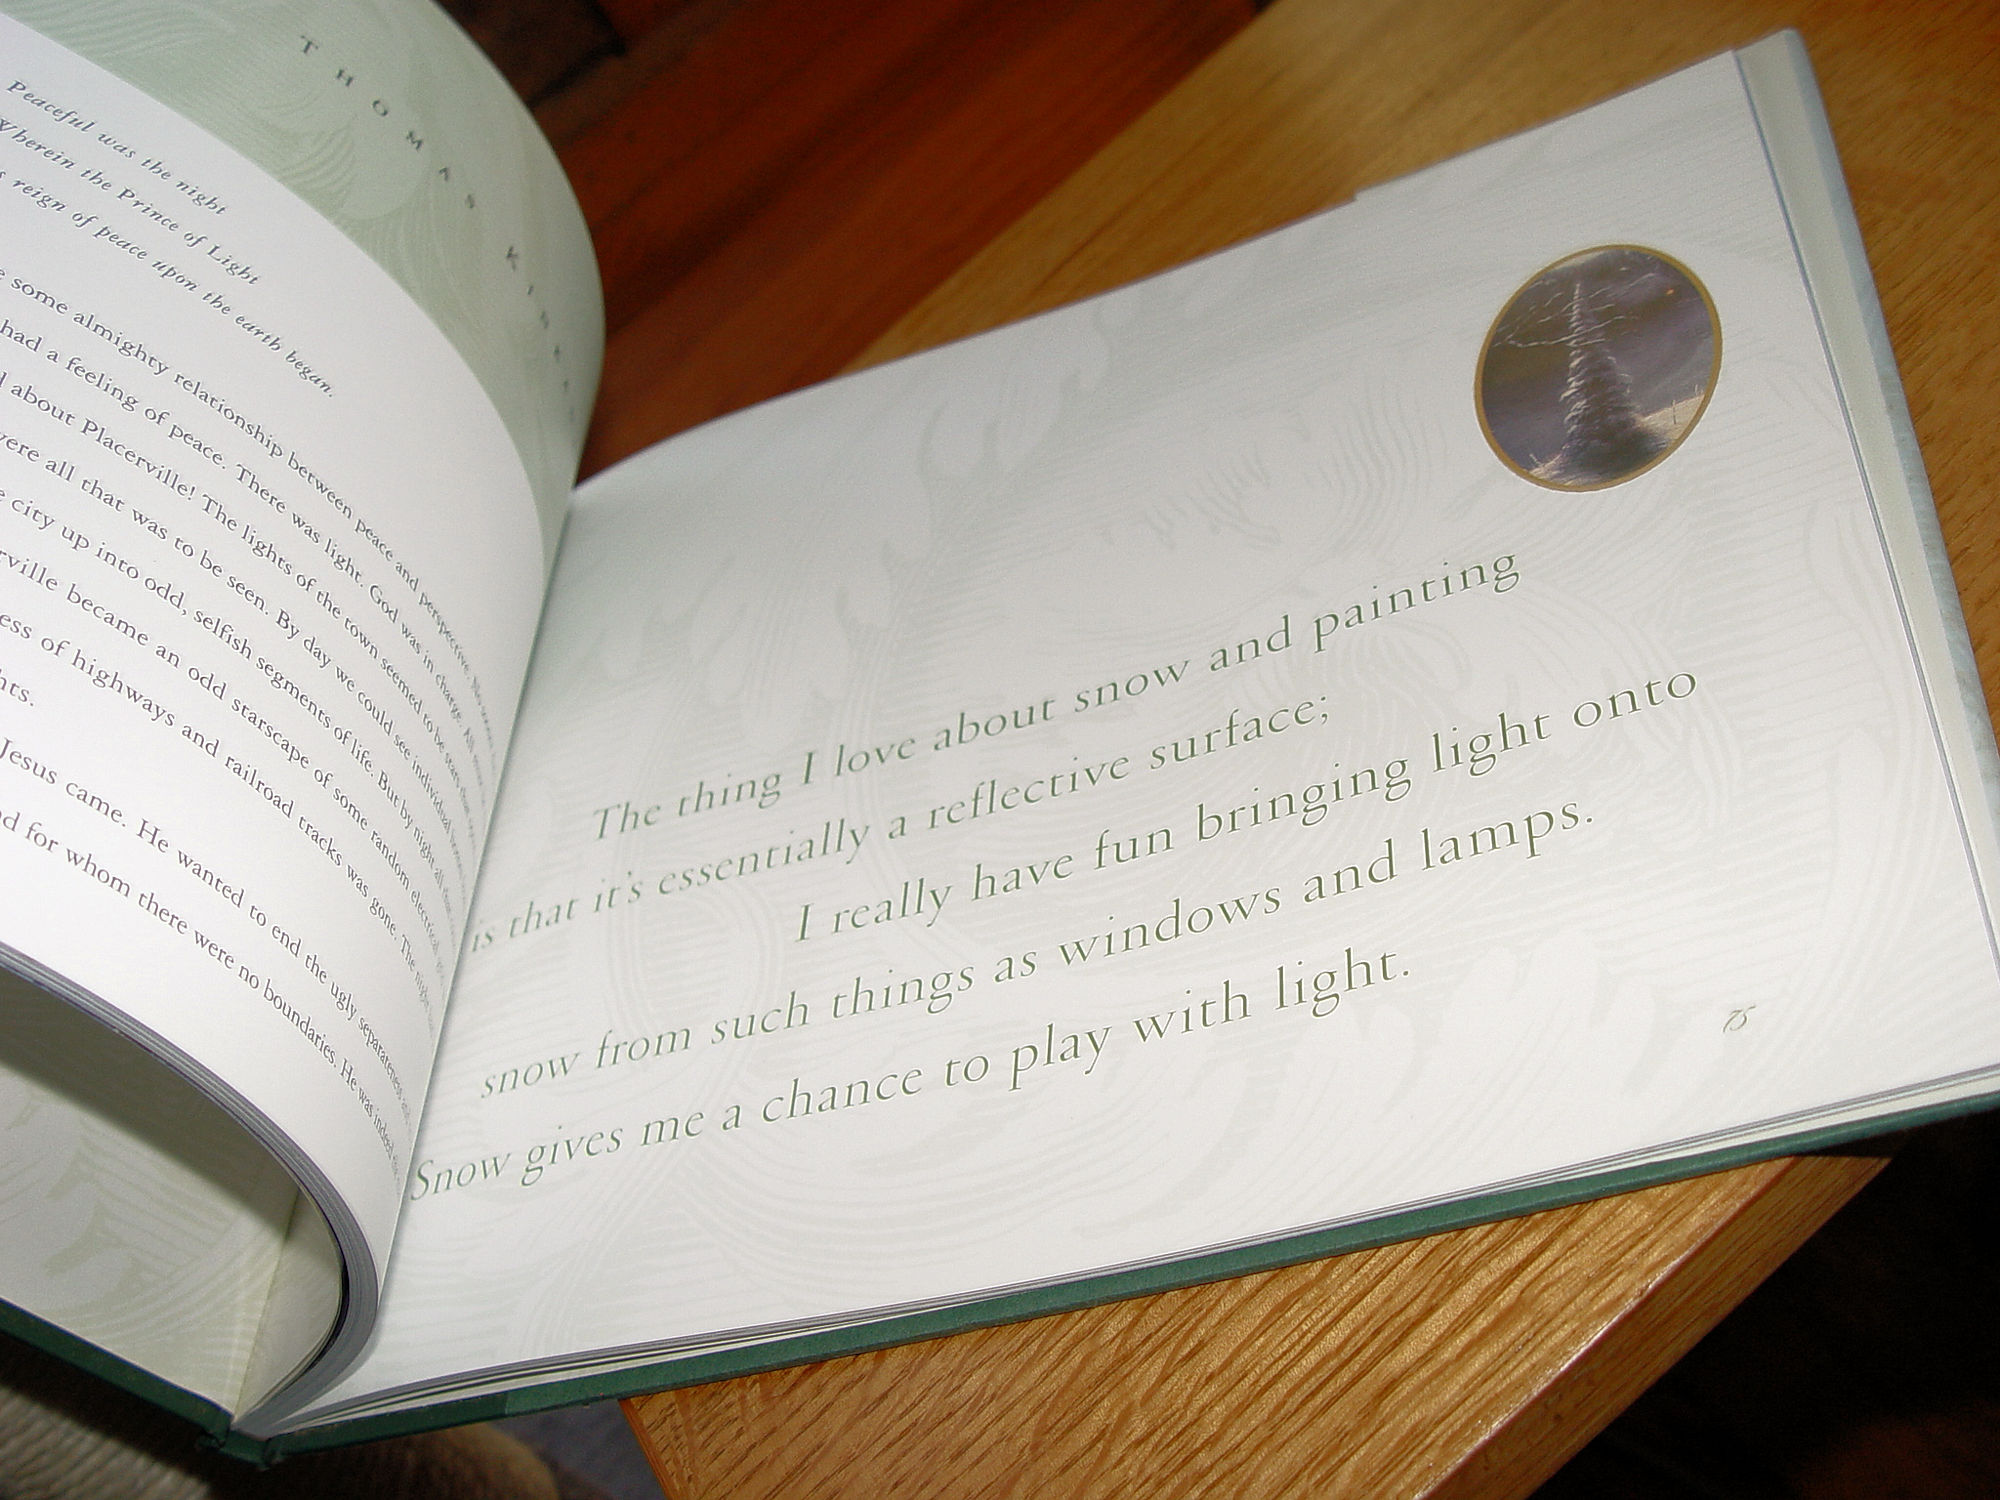 THOMAS KINKA
Peaceful was the night
Wherein the Prince of Light
reign of peace upon the earth began.
some almighty relationship between peace and perspective.
had a feeling of peace. There was light. God was in charge. All
about Placerville! The lights of the town seemed to be stars
were all that was to be seen. By day we could see individual
city up into odd, selfish segments of life. But by night all
became an odd starscape of some random electrical
of highways and railroad tracks was gone. The night
Jesus came. He wanted to end the ugly separateness
for whom there were no boundaries. He was indeed the
The thing I love about snow and painting
is that it's essentially a reflective surface;
I really have fun bringing light onto
snow from such things as windows and lamps.
Snow gives me a chance to play with light.
75